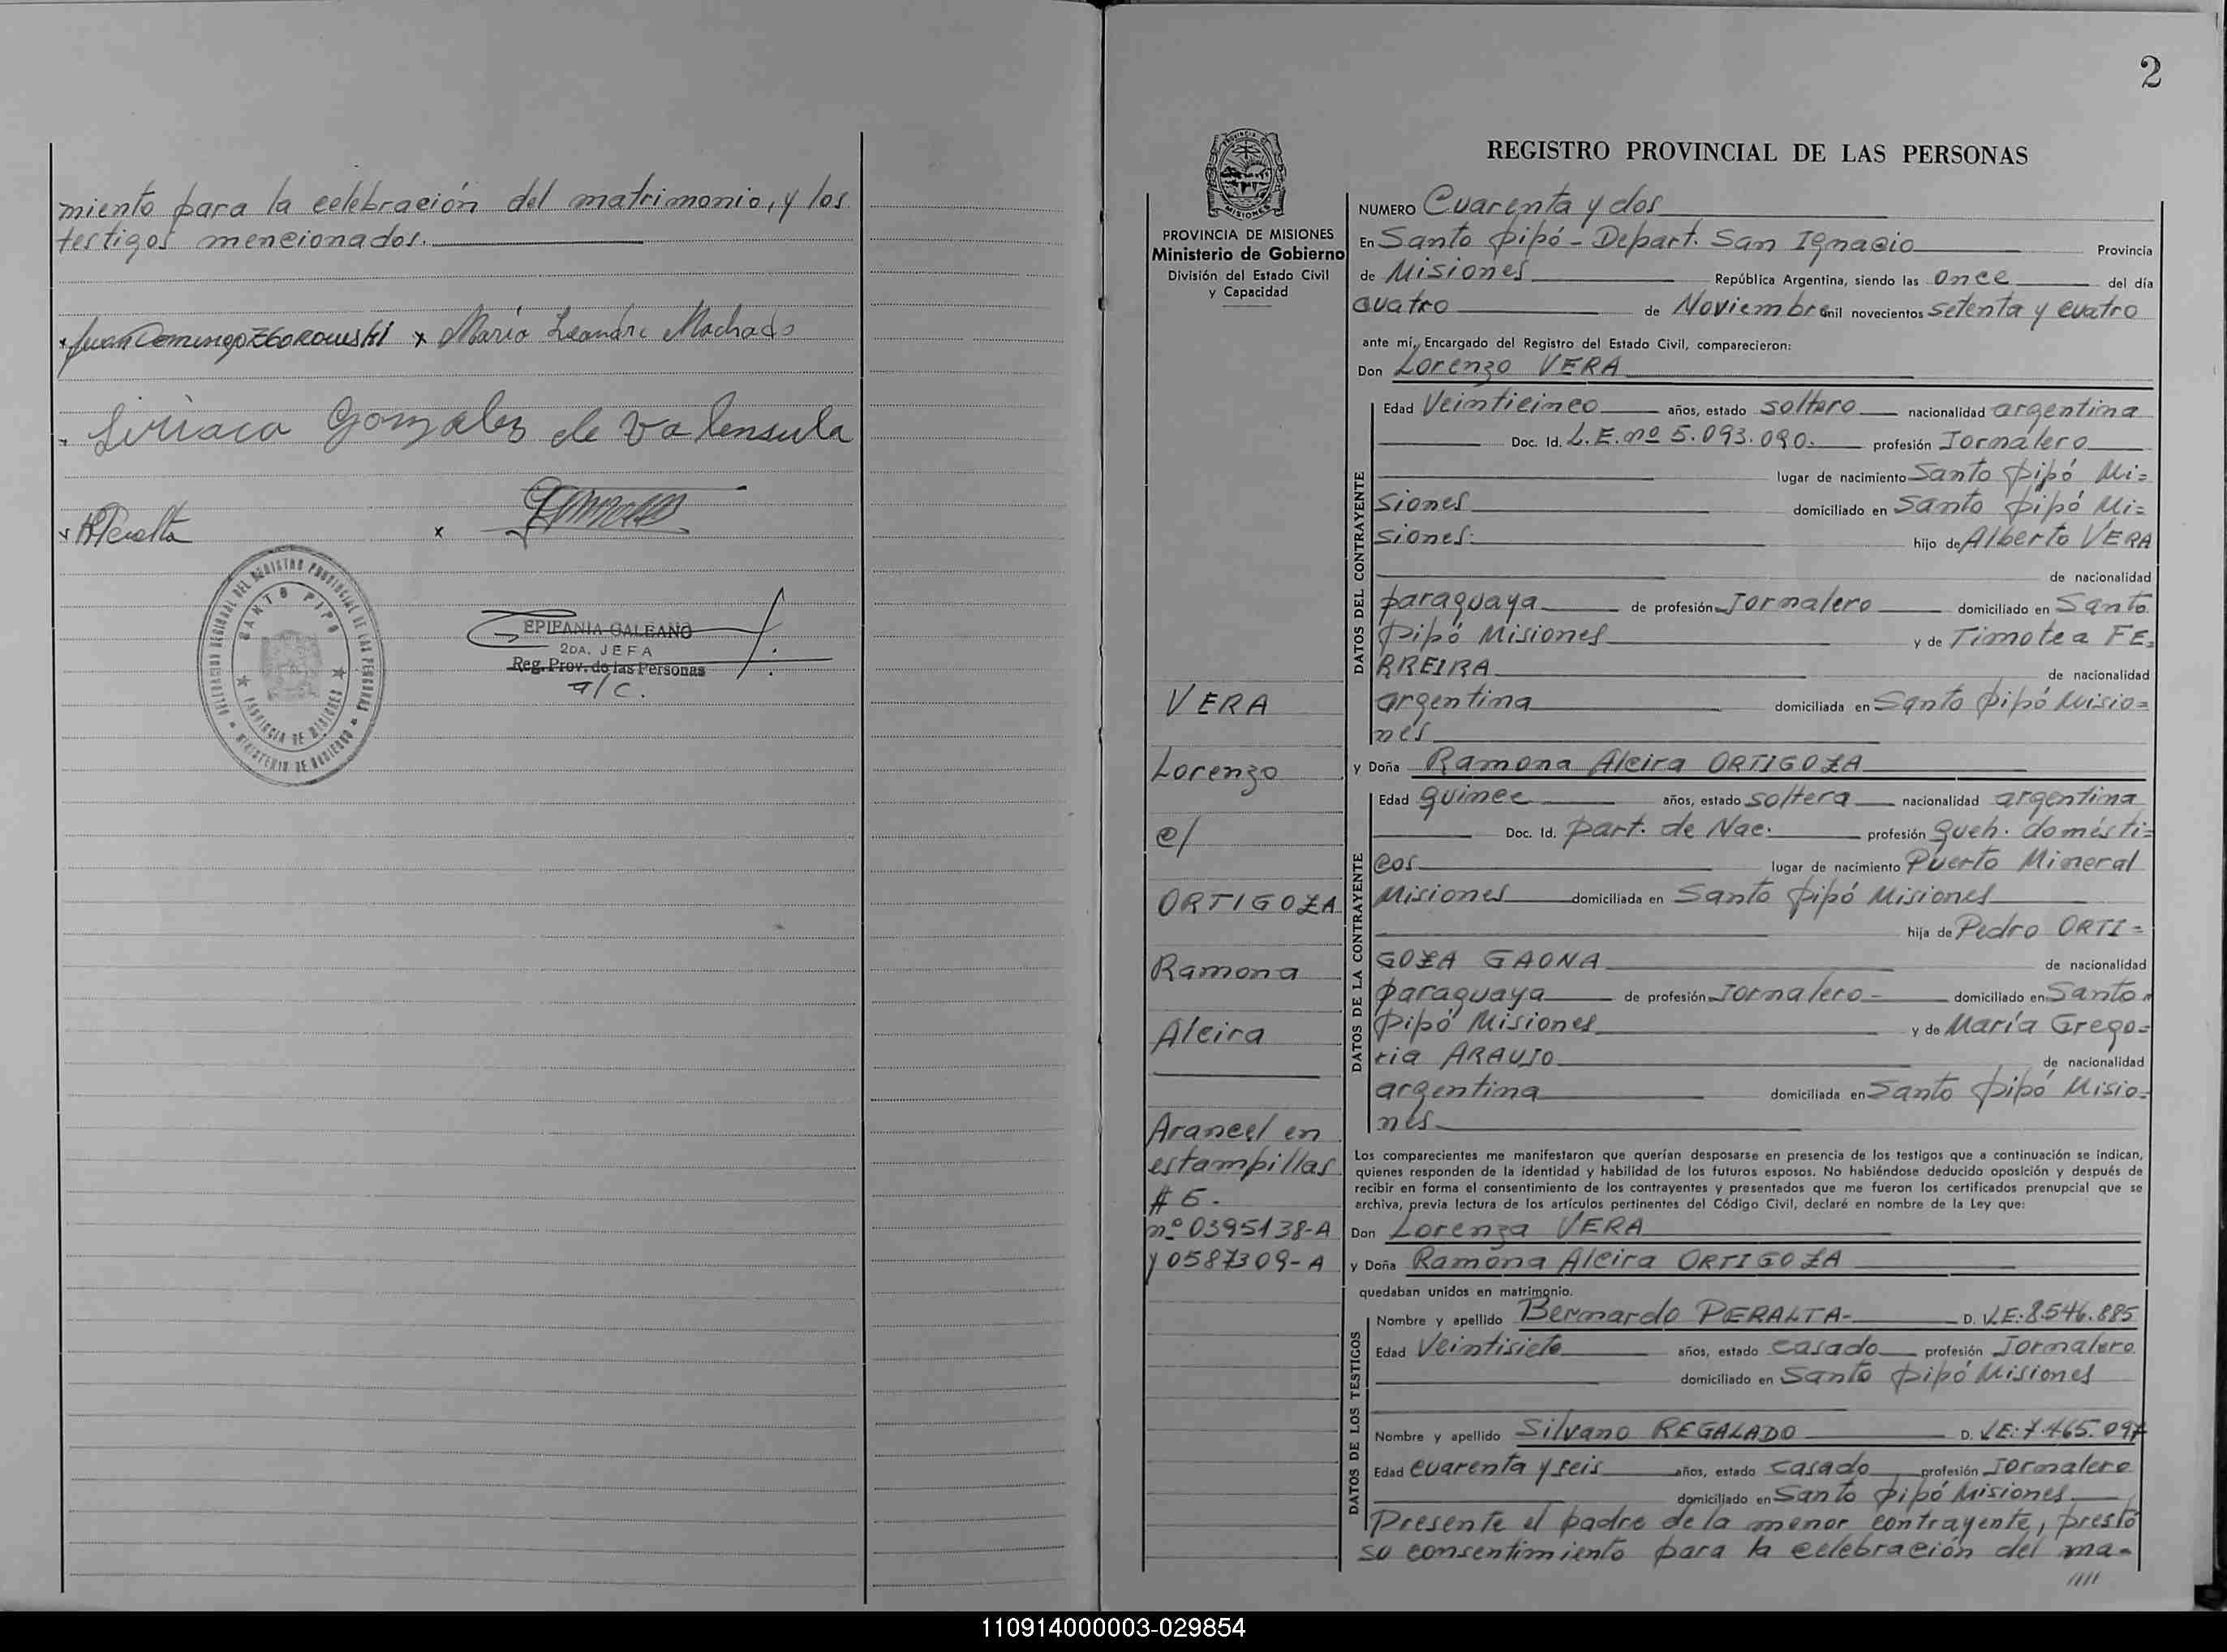 miento para la celebración del matrimonio, y los
testigos mencionados.
Juan Domingo Zborowski x Mario Leandro Machado
Siriaca Gonzalez de Valensuela
x BPeralta
x
DELEGACION REGIONAL DEL REGISTRO PROVINCIAL DE LAS PERSONAS
SANTO PIPO
PROVINCIA DE MISIONES
MINISTERIO DE GOBIERNO
EPIFANIA GALEANO
2DA. JEFA
Reg. Prov. de las Personas
a/c.
2
PROVINCIA DE MISIONES
Ministerio de Gobierno
División del Estado Civil
y Capacidad
VERA
Lorenzo
c/
ORTIGOZA
Ramona
Alcira
Arancel en
estampillas
$ 6.
nº 0395138-A
y 0587309-A
REGISTRO PROVINCIAL DE LAS PERSONAS
NUMERO Cuarenta y dos
En Santo Pipó - Depart. San Ignacio Provincia
de Misiones República Argentina, siendo las once del día
cuatro de Noviembre mil novecientos setenta y cuatro
ante mí, Encargado del Registro del Estado Civil, comparecieron:
Don Lorenzo VERA
DATOS DEL CONTRAYENTE
Edad Veinticinco años, estado soltero nacionalidad argentina
Doc. Id. L.E. nº 5.093.090. profesión Jornalero
lugar de nacimiento Santo Pipó Mi=
siones domiciliado en Santo Pipó Mi=
siones. hijo de Alberto VERA
de nacionalidad
paraguaya de profesión Jornalero domiciliado en Santo
Pipó Misiones y de Timotea FE=
RREIRA de nacionalidad
argentina domiciliada en Santo Pipó Misio=
nes
y Doña Ramona Alcira ORTIGOZA
DATOS DE LA CONTRAYENTE
Edad quince años, estado soltera nacionalidad argentina
Doc. Id. Part. de Nac. profesión queh. domésti=
cos lugar de nacimiento Puerto Mineral
Misiones domiciliada en Santo Pipó Misiones
hija de Pedro ORTI=
GOZA GAONA de nacionalidad
paraguaya de profesión Jornalero - domiciliado en Santo
Pipó Misiones y de María Grego=
ria ARAUJO de nacionalidad
argentina domiciliada en Santo Pipó Misio=
nes
Los comparecientes me manifestaron que querían desposarse en presencia de los testigos que a continuación se indican,
quienes responden de la identidad y habilidad de los futuros esposos. No habiéndose deducido oposición y después de
recibir en forma el consentimiento de los contrayentes y presentados que me fueron los certificados prenupcial que se
archiva, previa lectura de los artículos pertinentes del Código Civil, declaré en nombre de la Ley que:
Don Lorenza VERA
y Doña Ramona Alcira ORTIGOZA
quedaban unidos en matrimonio.
DATOS DE LOS TESTIGOS
Nombre y apellido Bernardo PERALTA- D. L.E: 8.546.885
Edad Veintisiete años, estado casado profesión Jornalero
domiciliado en Santo Pipó Misiones
Nombre y apellido Silvano REGALADO D. L.E: 7.465.097
Edad cuarenta y seis años, estado casado profesión Jornalero
domiciliado en Santo Pipó Misiones
Presente el padre de la menor contrayente, prestó
su consentimiento para la celebración del ma=
////
110914000003-029854